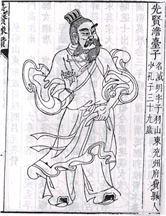 先賢澹臺子
名滅明字子羽山東兗州府費縣人
少孔子三十九歲